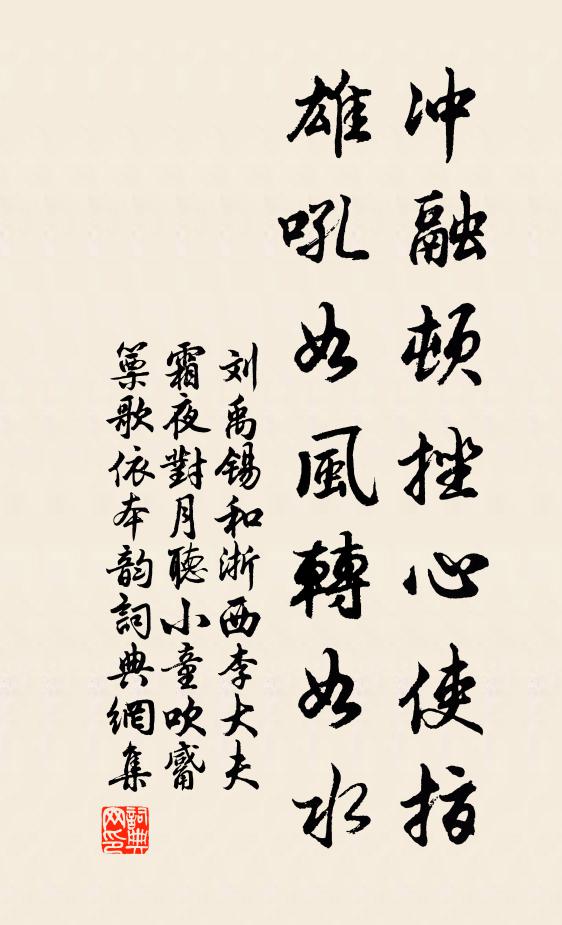 冲融顿挫心使指
雄吼如風轉如水
刘禹锡和浙西李大夫
霜夜對月聽小童吹觱
篥歌依本韵詞典網集
詞典網印